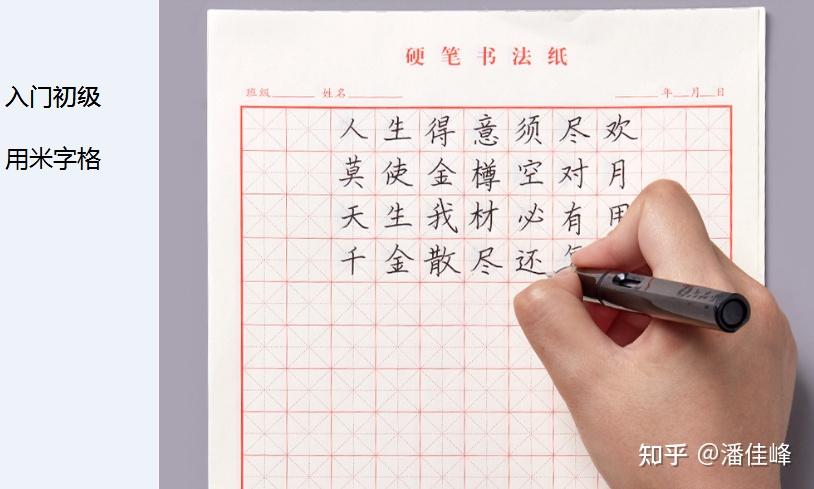 入门初级
用米字格
硬笔书法纸
班级 姓名 年 月 日
人生得意须尽欢
莫使金樽空对月
天生我材必有用
千金散尽还
知乎 @潘佳峰